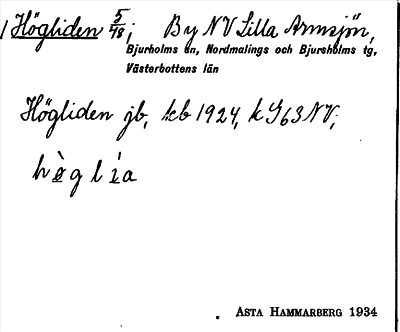 1 Högliden 5/48; By NV Lilla Armsjön,
Bjurholms sn, Nordmalings och Bjurholms tg,
Västerbottens län
Högliden jb, kb 1924, k J63NV;
hø̀glía
Asta Hammarberg 1934